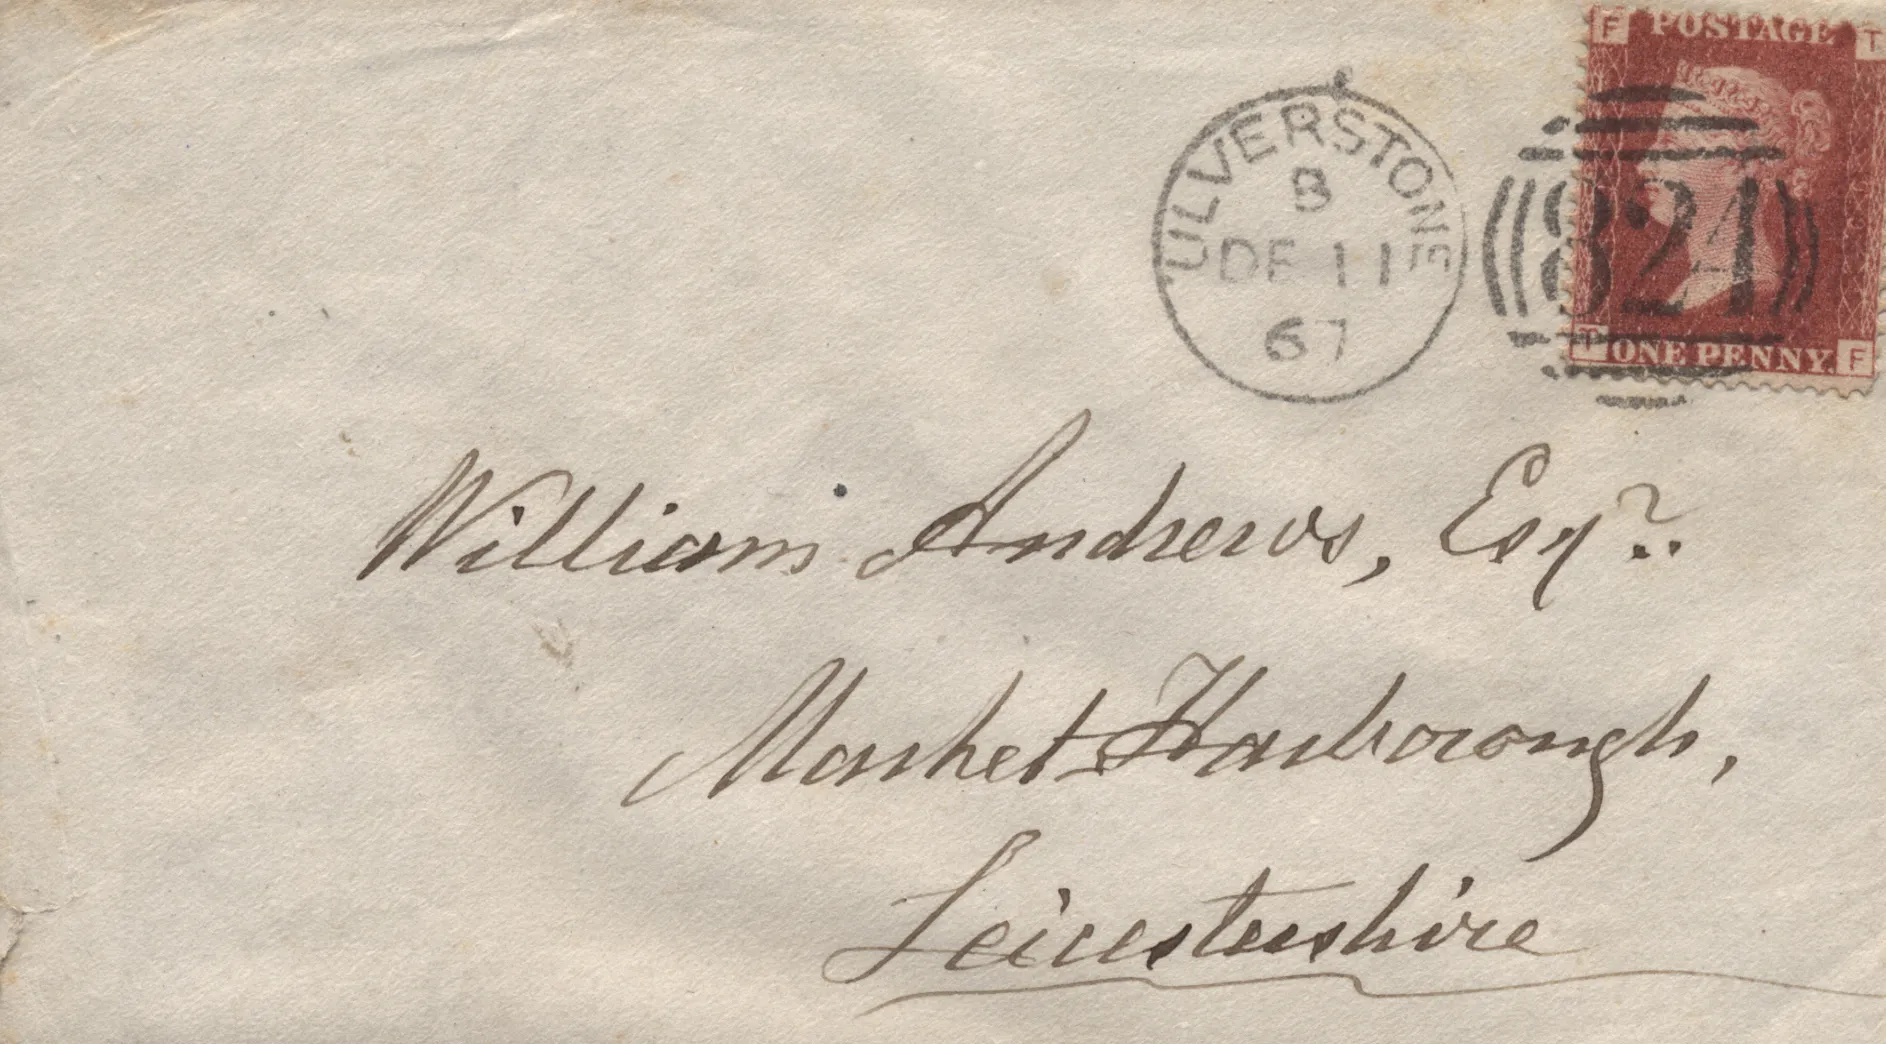 F POSTAGE T
ULVERSTONE
B
DE 11
67
824
T ONE PENNY. F
William Andrews, Esqr.
Market Harborough,
Leicestershire